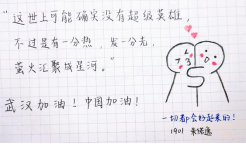 “这世上可能确实没有超级英雄，
不过是有一分热，发一分光，
萤火汇聚成星河。”
武汉加油！中国加油！
一切都会好起来的！
1901